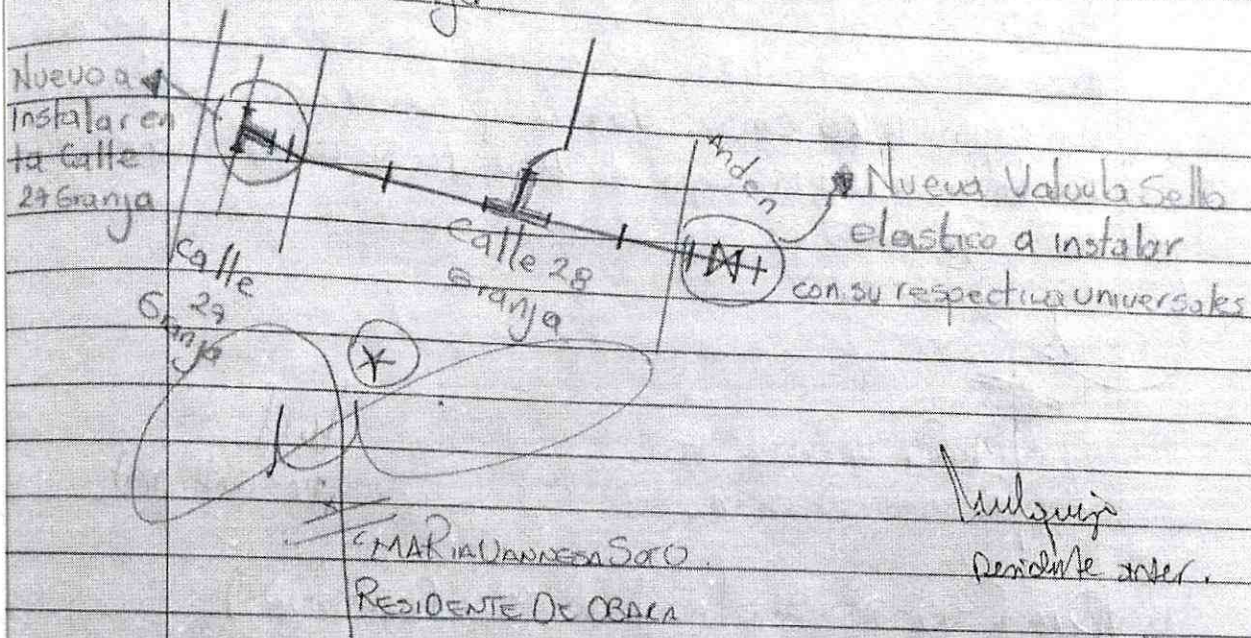 Nuevo a
Instalar en
la Calle
27 Granja
Calle
29
Granja
Calle 28
Granja
Anden
Nueva Valvula Sello
elastico a instalar
con su respectiva universales
MARIA VANNESA SOTO.
RESIDENTE DE OBRA
Residente inter.